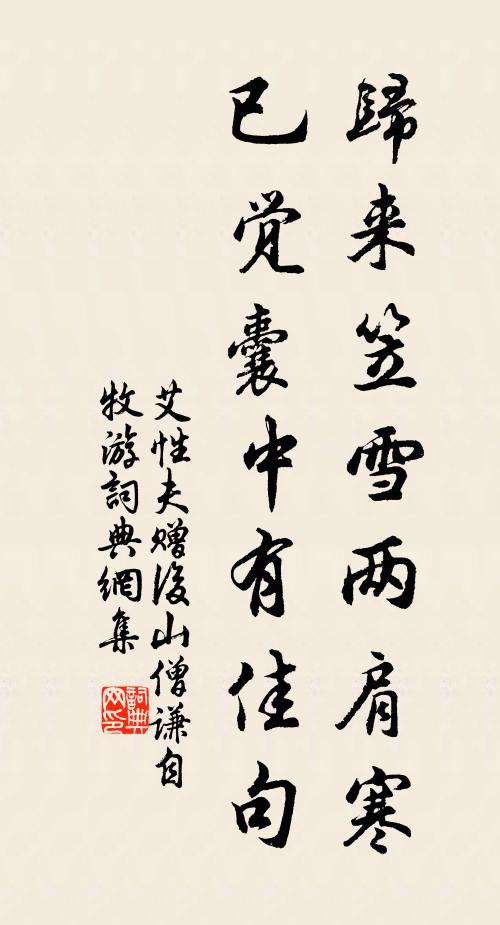 歸来笠雪两肩寒
已觉囊中有佳句
艾性夫赠后山僧谦自
牧游詞典網集
詞典
网印